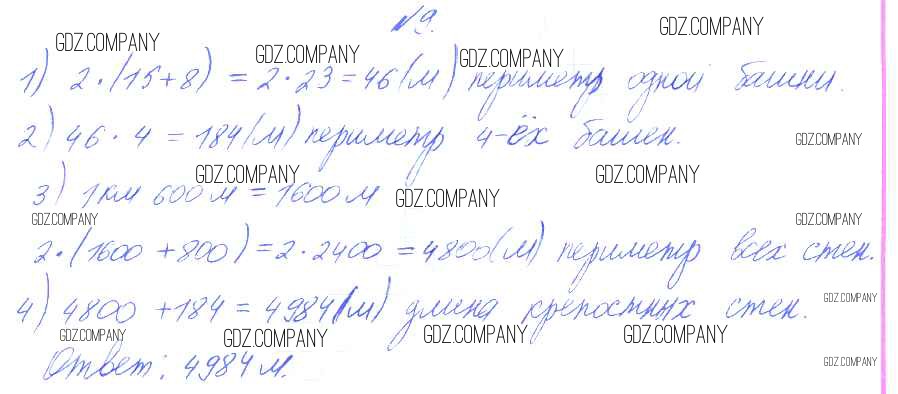 №9.
GDZ.COMPANY GDZ.COMPANY GDZ.COMPANY GDZ.COMPANY
1) 2·(15+8) = 2·23=46(м) периметр одной башни.
2) 46·4 = 184(м) периметр 4-ёх башен.
GDZ.COMPANY
GDZ.COMPANY GDZ.COMPANY
3) 1км 600м = 1600м
GDZ.COMPANY
GDZ.COMPANY GDZ.COMPANY
2·(1600 +800)=2·2400 =4800(м) периметр всех стен.
4) 4800 +184 = 4984(м) длина крепостных стен.
GDZ.COMPANY
GDZ.COMPANY GDZ.COMPANY GDZ.COMPANY GDZ.COMPANY
Ответ: 4984м.
GDZ.COMPANY